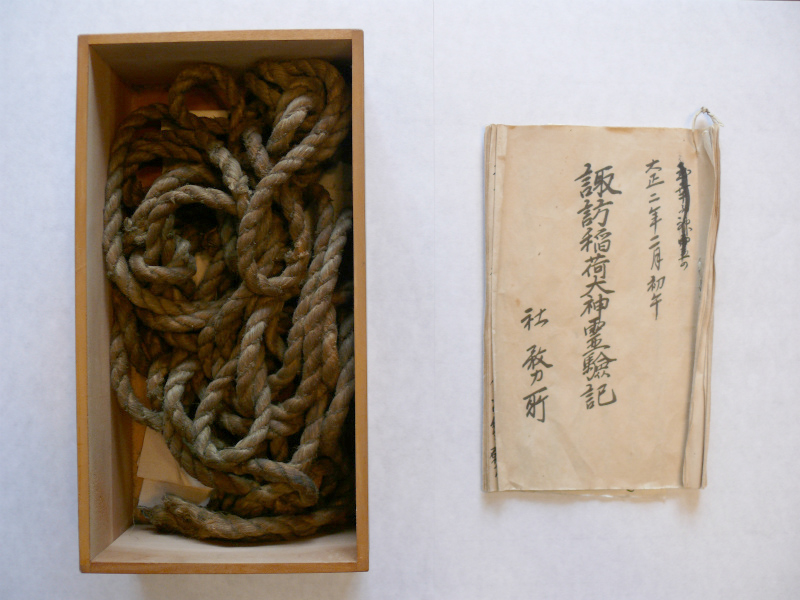 大正二年二月初午
諏訪稲荷大神霊驗記
社務所